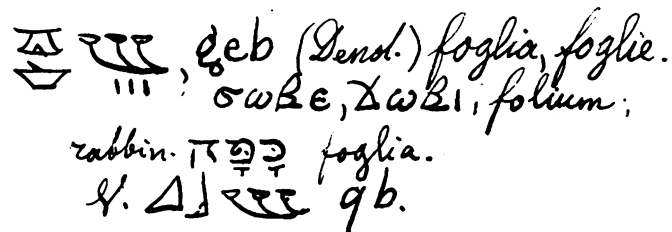 , geb (Dend.) foglia, foglie.
ϭⲱⲃⲉ, ϫⲱⲃⲓ, folium;
rabbin. כָּפָּה foglia.
V. 𓈎𓃀 qb.